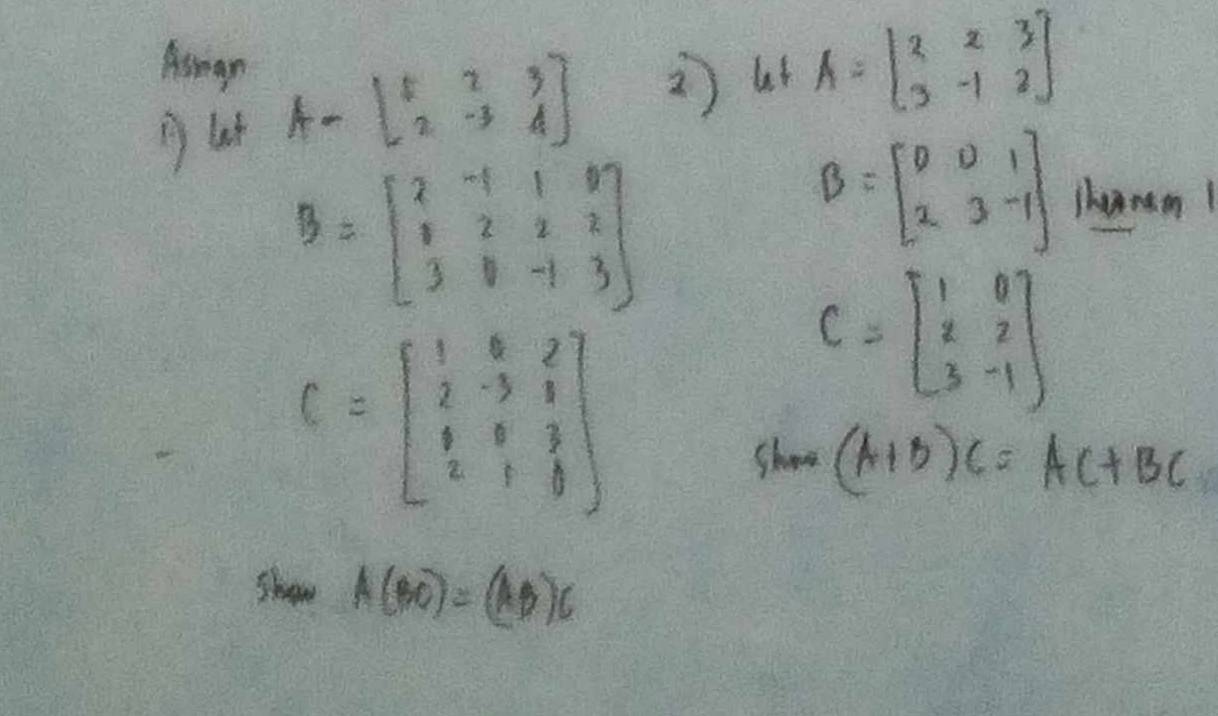 Assign
1) let A = [5 2 3]
[2 -3 4]
B = [2 -1 1 0]
[0 2 2 2]
[3 0 -1 3]
C = [1 0 2]
[2 -3 0]
[0 0 3]
[2 1 0]
Show A(BC) = (AB)C
2) let A = [2 2 3]
[3 -1 2]
B = [0 0 1]
[2 3 -1] Theorem 1
C = [1 0]
[2 2]
[3 -1]
Show (A+B)C = AC + BC